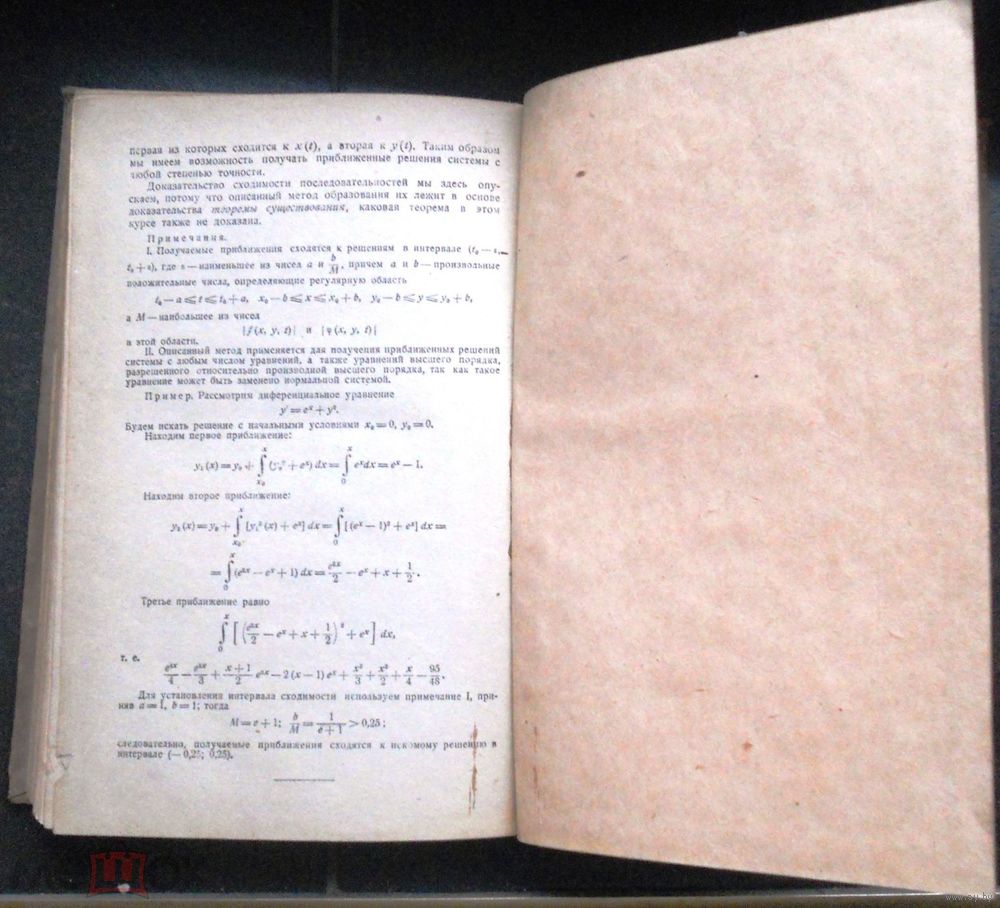 первая из которых сходится к x (t), а вторая к y (t). Таким образом
мы имеем возможность получать приближенные решения системы с
любой степенью точности.
Доказательство сходимости последовательностей мы здесь опу-
скаем, потому что описанный метод образования их лежит в основе
доказательства теоремы существования, каковая теорема в этом
курсе также не доказана.
Примечания.
I. Получаемые приближения сходятся к решениям в интервале (t₀ — s,
t₀ + s), где s — наименьшее из чисел a и b/M, причем a и b — произвольные
положительные числа, определяющие регулярную область
t₀ — a ⩽ t ⩽ t₀ + a, x₀ — b ⩽ x ⩽ x₀ + b, y₀ — b ⩽ y ⩽ y₀ + b,
а M — наибольшее из чисел
|f (x, y, t)| и |φ (x, y, t)|
в этой области.
II. Описанный метод применяется для получения приближенных решений
системы с любым числом уравнений, а также уравнений высшего порядка,
разрешенного относительно производной высшего порядка, так как такое
уравнение может быть заменено нормальной системой.
Пример. Рассмотрим диференциальное уравнение
y′ = eˣ + y².
Будем искать решение с начальными условиями x₀ = 0, y₀ = 0.
Находим первое приближение:
y₁ (x) = y₀ + ∫ₓ₀ˣ (y₀² + eˣ) dx = ∫₀ˣ eˣdx = eˣ — 1.
Находим второе приближение:
y₂ (x) = y₀ + ∫ₓ₀ˣ [y₁² (x) + eˣ] dx = ∫₀ˣ [(eˣ — 1)² + eˣ] dx =
= ∫₀ˣ (e²ˣ — eˣ + 1) dx = e²ˣ/2 — eˣ + x + 1/2.
Третье приближение равно
∫₀ˣ [(e²ˣ/2 — eˣ + x + 1/2)² + eˣ] dx,
т. е.
e⁴ˣ/4 — e³ˣ/3 + (x + 1)/2 e²ˣ — 2 (x — 1) eˣ + x³/3 + x²/2 + x/4 — 95/48.
Для установления интервала сходимости используем примечание I, при-
няв a = 1, b = 1; тогда
M = e + 1; b/M = 1/(e + 1) > 0,25;
следовательно, получаемые приближения сходятся к искомому решению в
интервале (— 0,25; 0,25).
МЕШОК
www.ay.by